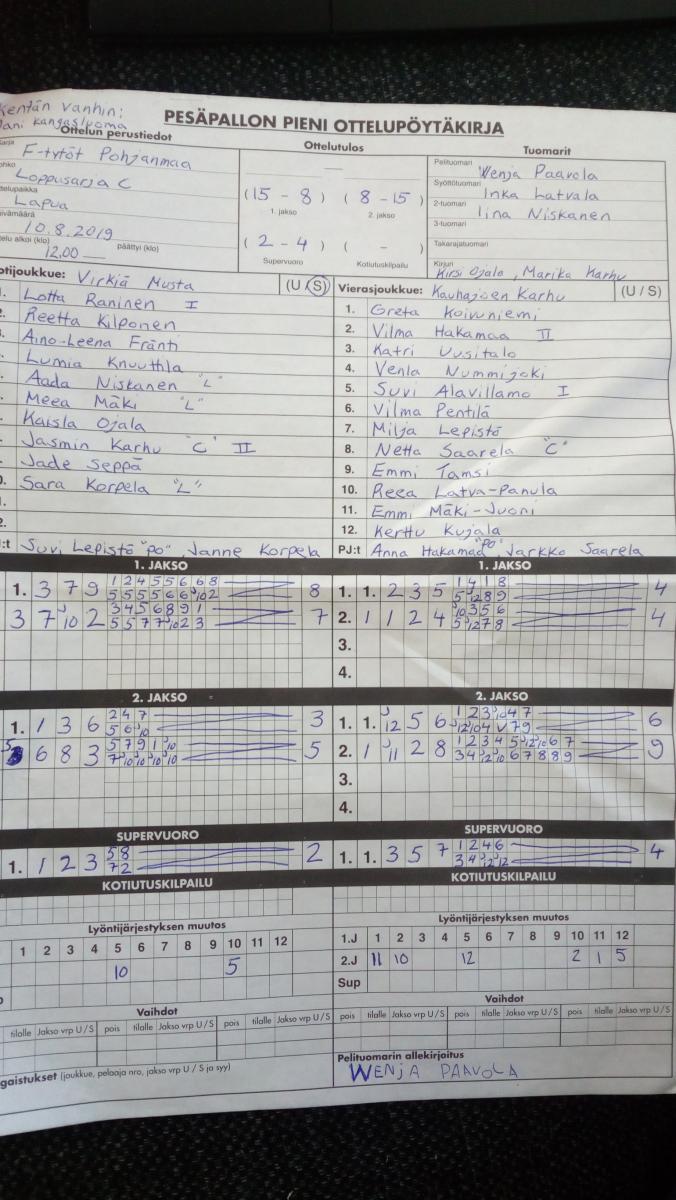 Kentän vanhin:
Jani Kangasluoma
PESÄPALLON PIENI OTTELUPÖYTÄKIRJA
Ottelun perustiedot
Ottelutulos
Tuomarit
F-tytöt Pohjanmaa
Loppusarja C
Lapua
10.8.2019
12.00 päättyi (klo)
(15 - 8) (8 - 15)
1. jakso 2. jakso
(2 - 4) ( - )
Supervuoro Kotiutuskilpailu
Pelituomari Wenja Paavola
Syöttötuomari Inka Latvala
2-tuomari Iina Niskanen
3-tuomari
Takarajatuomari
Kirjuri Kirsi Ojala, Marika Karhu
Virkiä Musta (U / S)
Lotta Raninen I
Reetta Kilponen
Aino-Leena Fränti
Lumia Knuuttila
Aada Niskanen "L"
Meea Mäki "L"
Kaisla Ojala
Jasmin Karhu "C" II
Jade Seppä
Sara Korpela "L"
Suvi Lepistö "PO", Janne Korpela
Vierasjoukkue: Kauhajoen Karhu (U / S)
1. Greta Koivuniemi
2. Vilma Hakamaa II
3. Katri Uusitalo
4. Venla Nummijoki
5. Suvi Alavillamo I
6. Vilma Pentilä
7. Milja Lepistö
8. Netta Saarela "C"
9. Emmi Tamsi
10. Reea Latva-Panula
11. Emmi Mäki-Jouni
12. Kerttu Kujala
PJ:t Anna Hakamaa "PO", Jarkko Saarela
1. JAKSO
1. 3 7 9
8
7
1. JAKSO
1. 1. 2 3 5
4
2. 1 1 2 4
4
3.
4.
2. JAKSO
1. 1 3 6
2 4 7
3
6 8 3
5
2. JAKSO
1. 1.
5 6
6
2. 1
2 8
9
3.
4.
SUPERVUORO
1. 1 2 3
5 8
7 2
2
SUPERVUORO
1. 1. 3 5 7
1 2 4 6
4
KOTIUTUSKILPAILU
KOTIUTUSKILPAILU
Lyöntijärjestyksen muutos
1 2 3 4 5 6 7 8 9 10 11 12
10 5
Lyöntijärjestyksen muutos
1.J 1 2 3 4 5 6 7 8 9 10 11 12
2.J 11 10 12 2 1 5
Sup
Vaihdot
tilalle Jakso vrp U/S pois tilalle Jakso vrp U/S pois tilalle Jakso vrp U/S
Vaihdot
pois tilalle Jakso vrp U/S pois tilalle Jakso vrp U/S pois tilalle Jakso vrp U/S
(joukkue, pelaaja nro, jakso vrp U / S ja syy)
Pelituomarin allekirjoitus
WENJA PAAVOLA